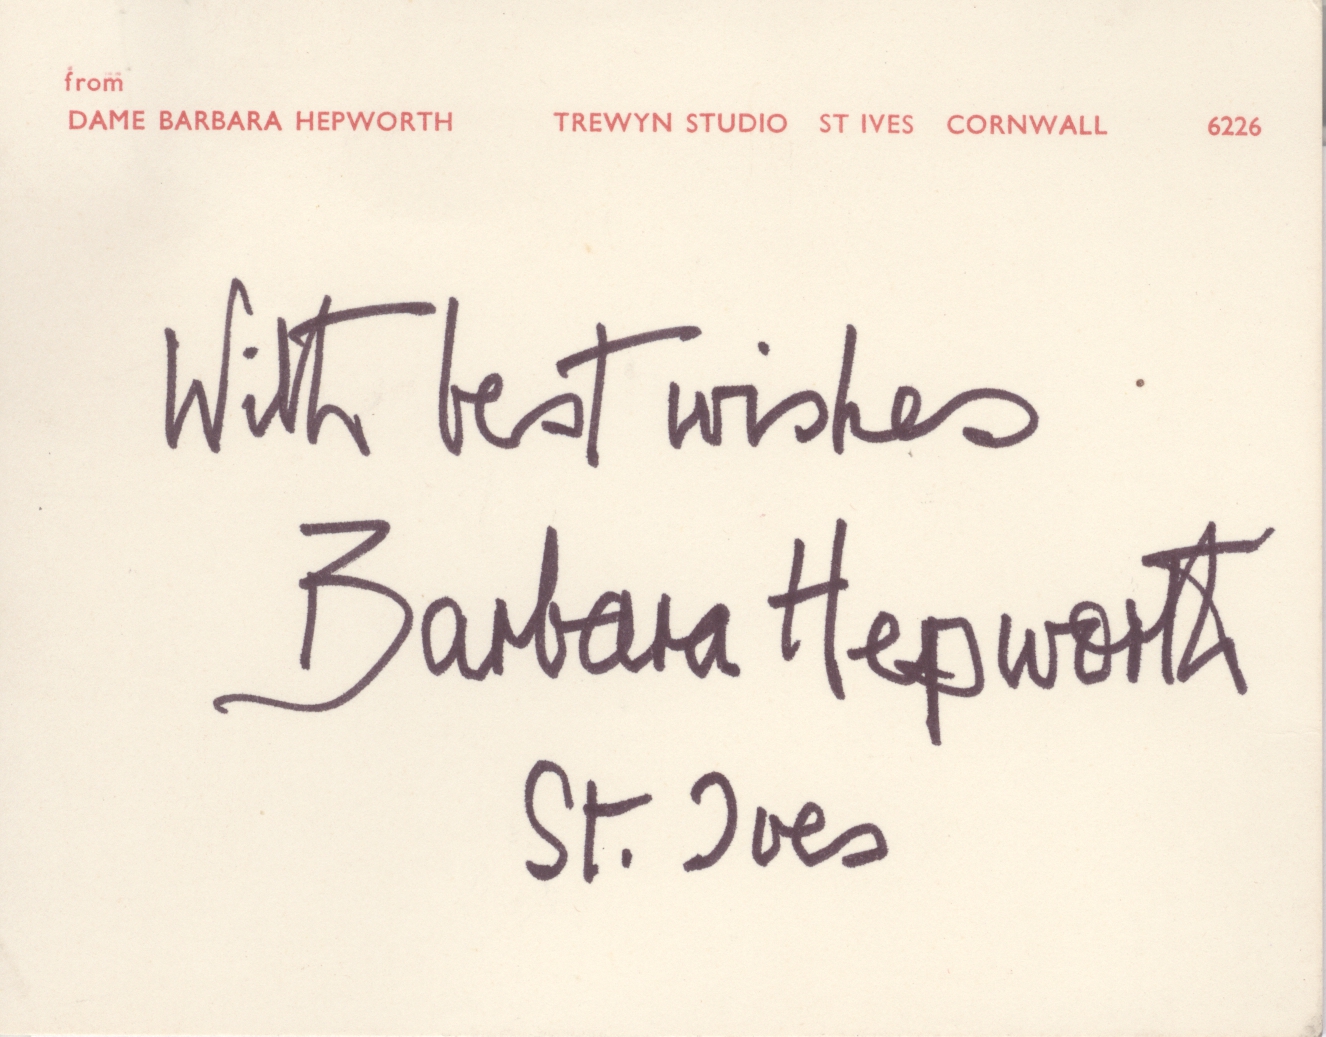 from
DAME BARBARA HEPWORTH TREWYN STUDIO ST IVES CORNWALL 6226
With best wishes
Barbara Hepworth
St. Ives